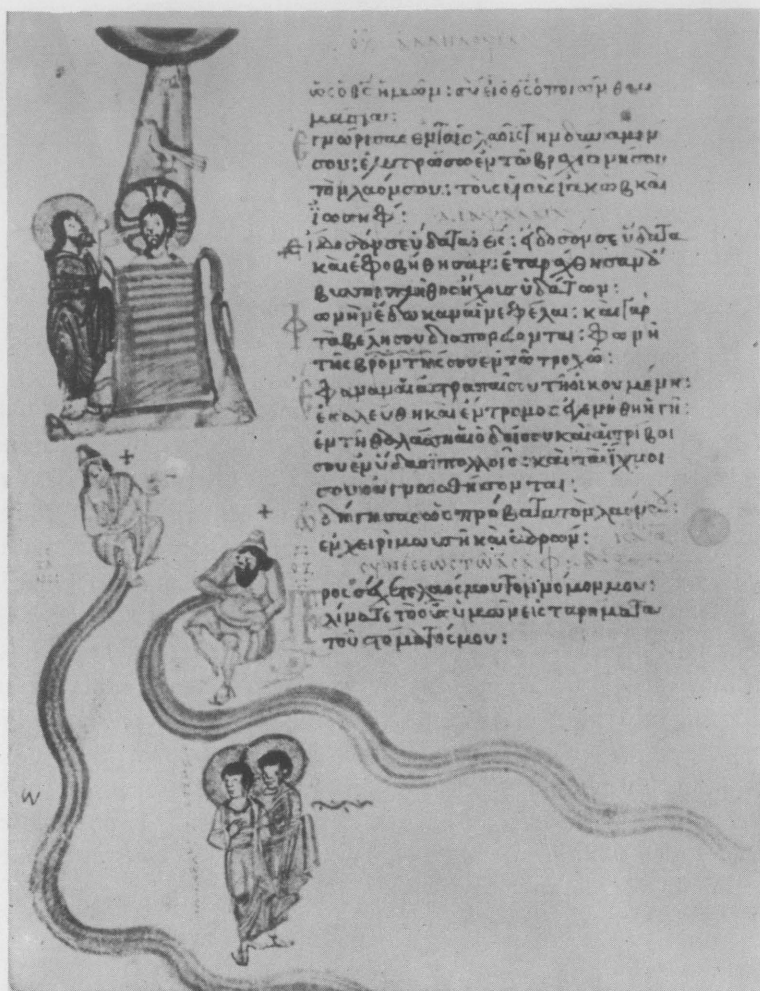 ὡς ὁ θς ἡμῶν: σὺ εἶ ὁ θς ὁ ποιῶν θαυ
μάσια:
Ἐγνώρισας ἐν τοῖς λαοῖς τὴν δύναμιν
σου: ἐλυτρώσω ἐν τῶ βραχίονι σου
τὸν λαόν σου: τοὺς υἱοὺς ἰακὼβ καὶ
ἰωσὴφ: διάψαλμα
εἴδοσάν σε ὕδατα ὁ θς: εἴδοσάν σε ὕδατα
καὶ ἐφοβήθησαν: ἐταράχθησαν ἄ
βυσσοι πλῆθος ἤχους ὑδάτων:
Φωνὴν ἔδωκαν αἱ νεφέλαι: καὶ γὰρ
τὰ βέλη σου διαπορεύονται: φωνὴ
τῆς βροντῆς σου ἐν τῶ τροχῶ:
Ἔφαναν αἱ ἀστραπαί σου τῆ οἰκουμένη:
ἐσαλεύθη καὶ ἔντρομος ἐγενήθη ἡ γῆ:
ἐν τῆ θαλάσση αἱ ὁδοί σου καὶ αἱ τρίβοι
σου ἐν ὕδασι πολλοῖς: καὶ τὰ ἴχνοι
σου οὐ γνωσθήσονται:
ὡδήγησας ὡς πρόβατα τὸν λαόν σου:
ἐν χειρὶ μωυσῆ καὶ ἀαρών:
συνέσεως τῶ ἀσάφ:
Προσέχετε λαός μου τὸν νόμον μου:
κλίνατε τὸ οὖς ὑμῶν εἰς τὰ ρήματα
τοῦ στόματός μου: